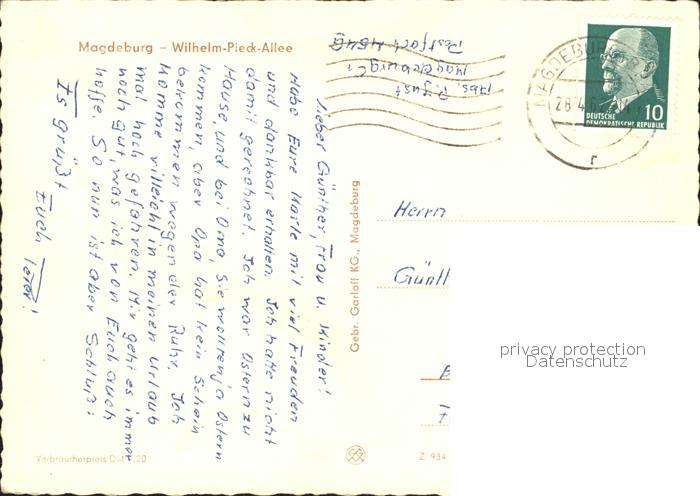 Magdeburg – Wilhelm-Pieck-Allee
Abs. P. Just
Magdeburg C1
Postfach 454 G
MAGDEBURG
28.4.6
10
DEUTSCHE
DEMOKRATISCHE REPUBLIK
Lieber Günther, Frau u. Kinder!
Habe Eure Karte mit viel Freuden
und dankbar erhalten. Ich hatte nicht
damit gerechnet. Ich war Ostern zu
Hause, und bei Oma, Sie wollten ja Ostern
kommen, aber Opa hat kein Schein
bekommen wegen der Ruhr. Ich
komme villeicht in meinen Urlaub
mal hoch gefahren. Mir geht es immer
noch gut was ich von Euch auch
hoffe. So nun ist aber Schluß!
Es grüßt
Euch Peter!
Gebr. Garloff KG., Magdeburg
Herrn
Günth
privacy protection
Datenschutz
Verbraucherpreis DM 0,20
Z 934